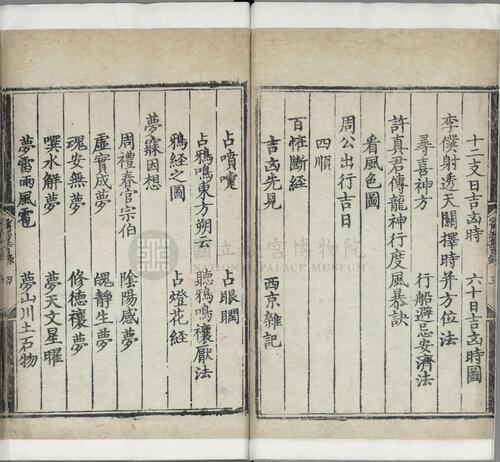 十二支日吉凶時 六十日吉凶時圖
李僕射透天關擇時并方位法
尋喜神方 行船避忌安濟法
許真君傳龍神行度風暴訣
看風色圖
周公出行吉日
四順
百恠斷經
吉凶先見 西京雜記
占噴嚏 占眼瞤
占鴉鳴東方朔云 聽鴉鳴禳厭法
鴉經之圖 占燈花経
夢寐因想
周禮春官宗伯 陰陽感夢
虛實成夢 魄靜生夢
魂安無夢 修德禳夢
噀水解夢 夢天文星曜
夢雷雨風雹 夢山川土石物
國立故宮博物院
NATIONAL PALACE MUSEUM